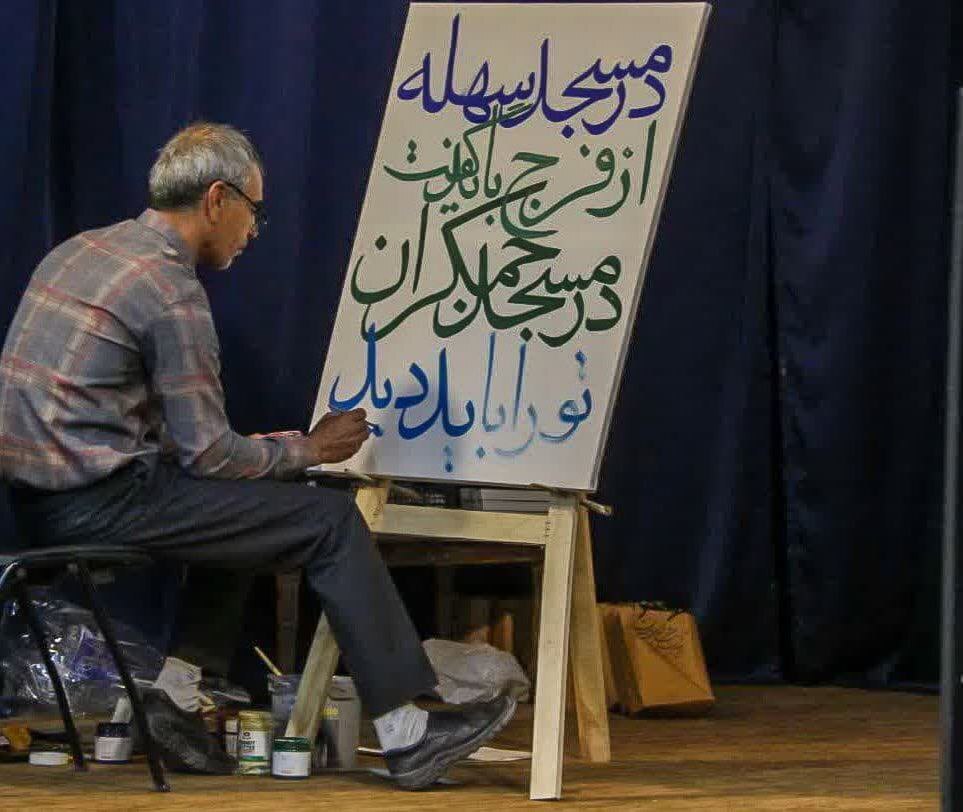 در مسجد سهله
از فرج باید گفت
در مسجد جمکران
تو را باید دید